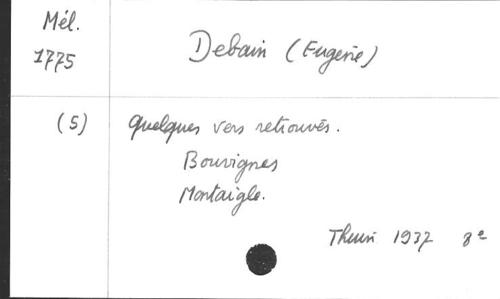 Mél.
1775
Debain (Eugénie)
(5) Quelques vers retrouvés.
Bouvignes
Montaigle.
1937 8e